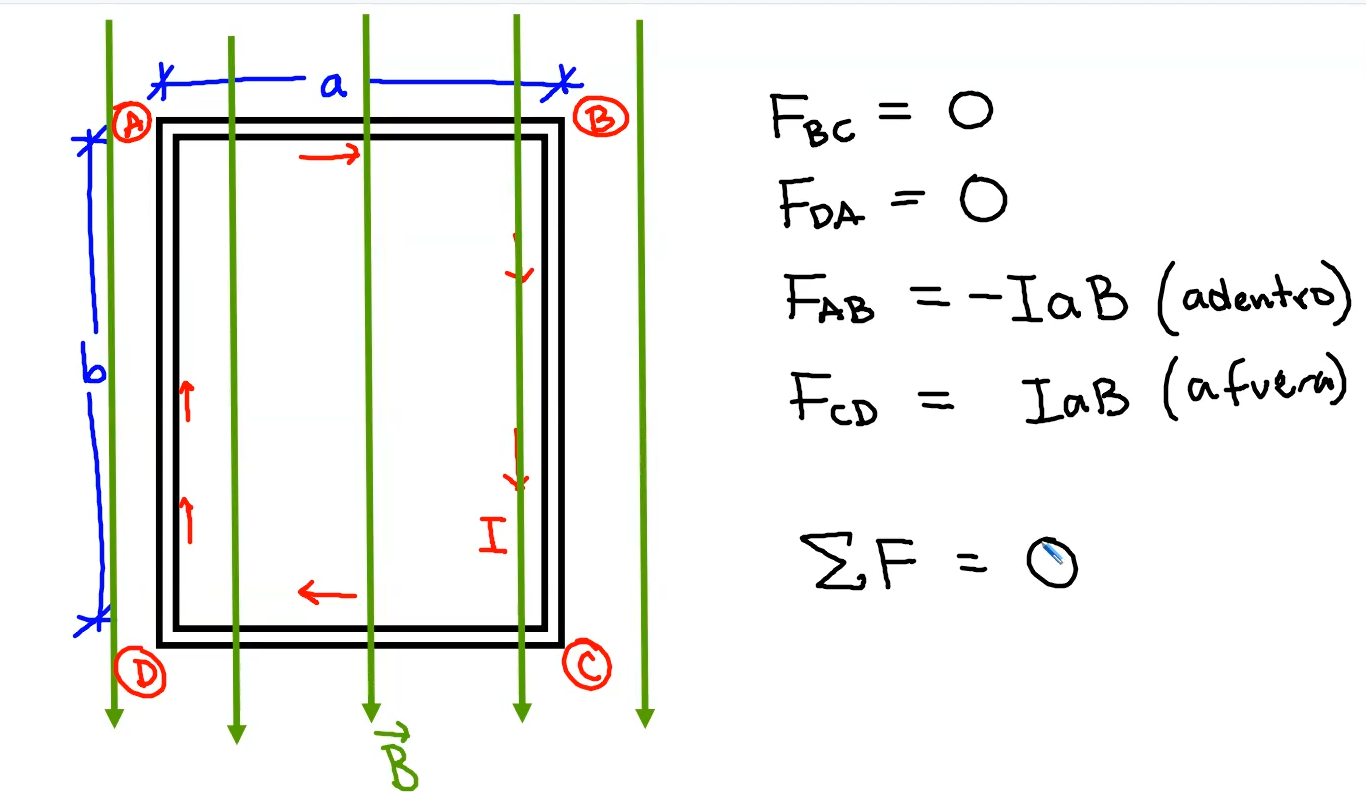 a
A
B
b
I
D
C
B⃗
F_BC = 0
F_DA = 0
F_AB = -IaB (adentro)
F_CD = IaB (afuera)
ΣF = 0